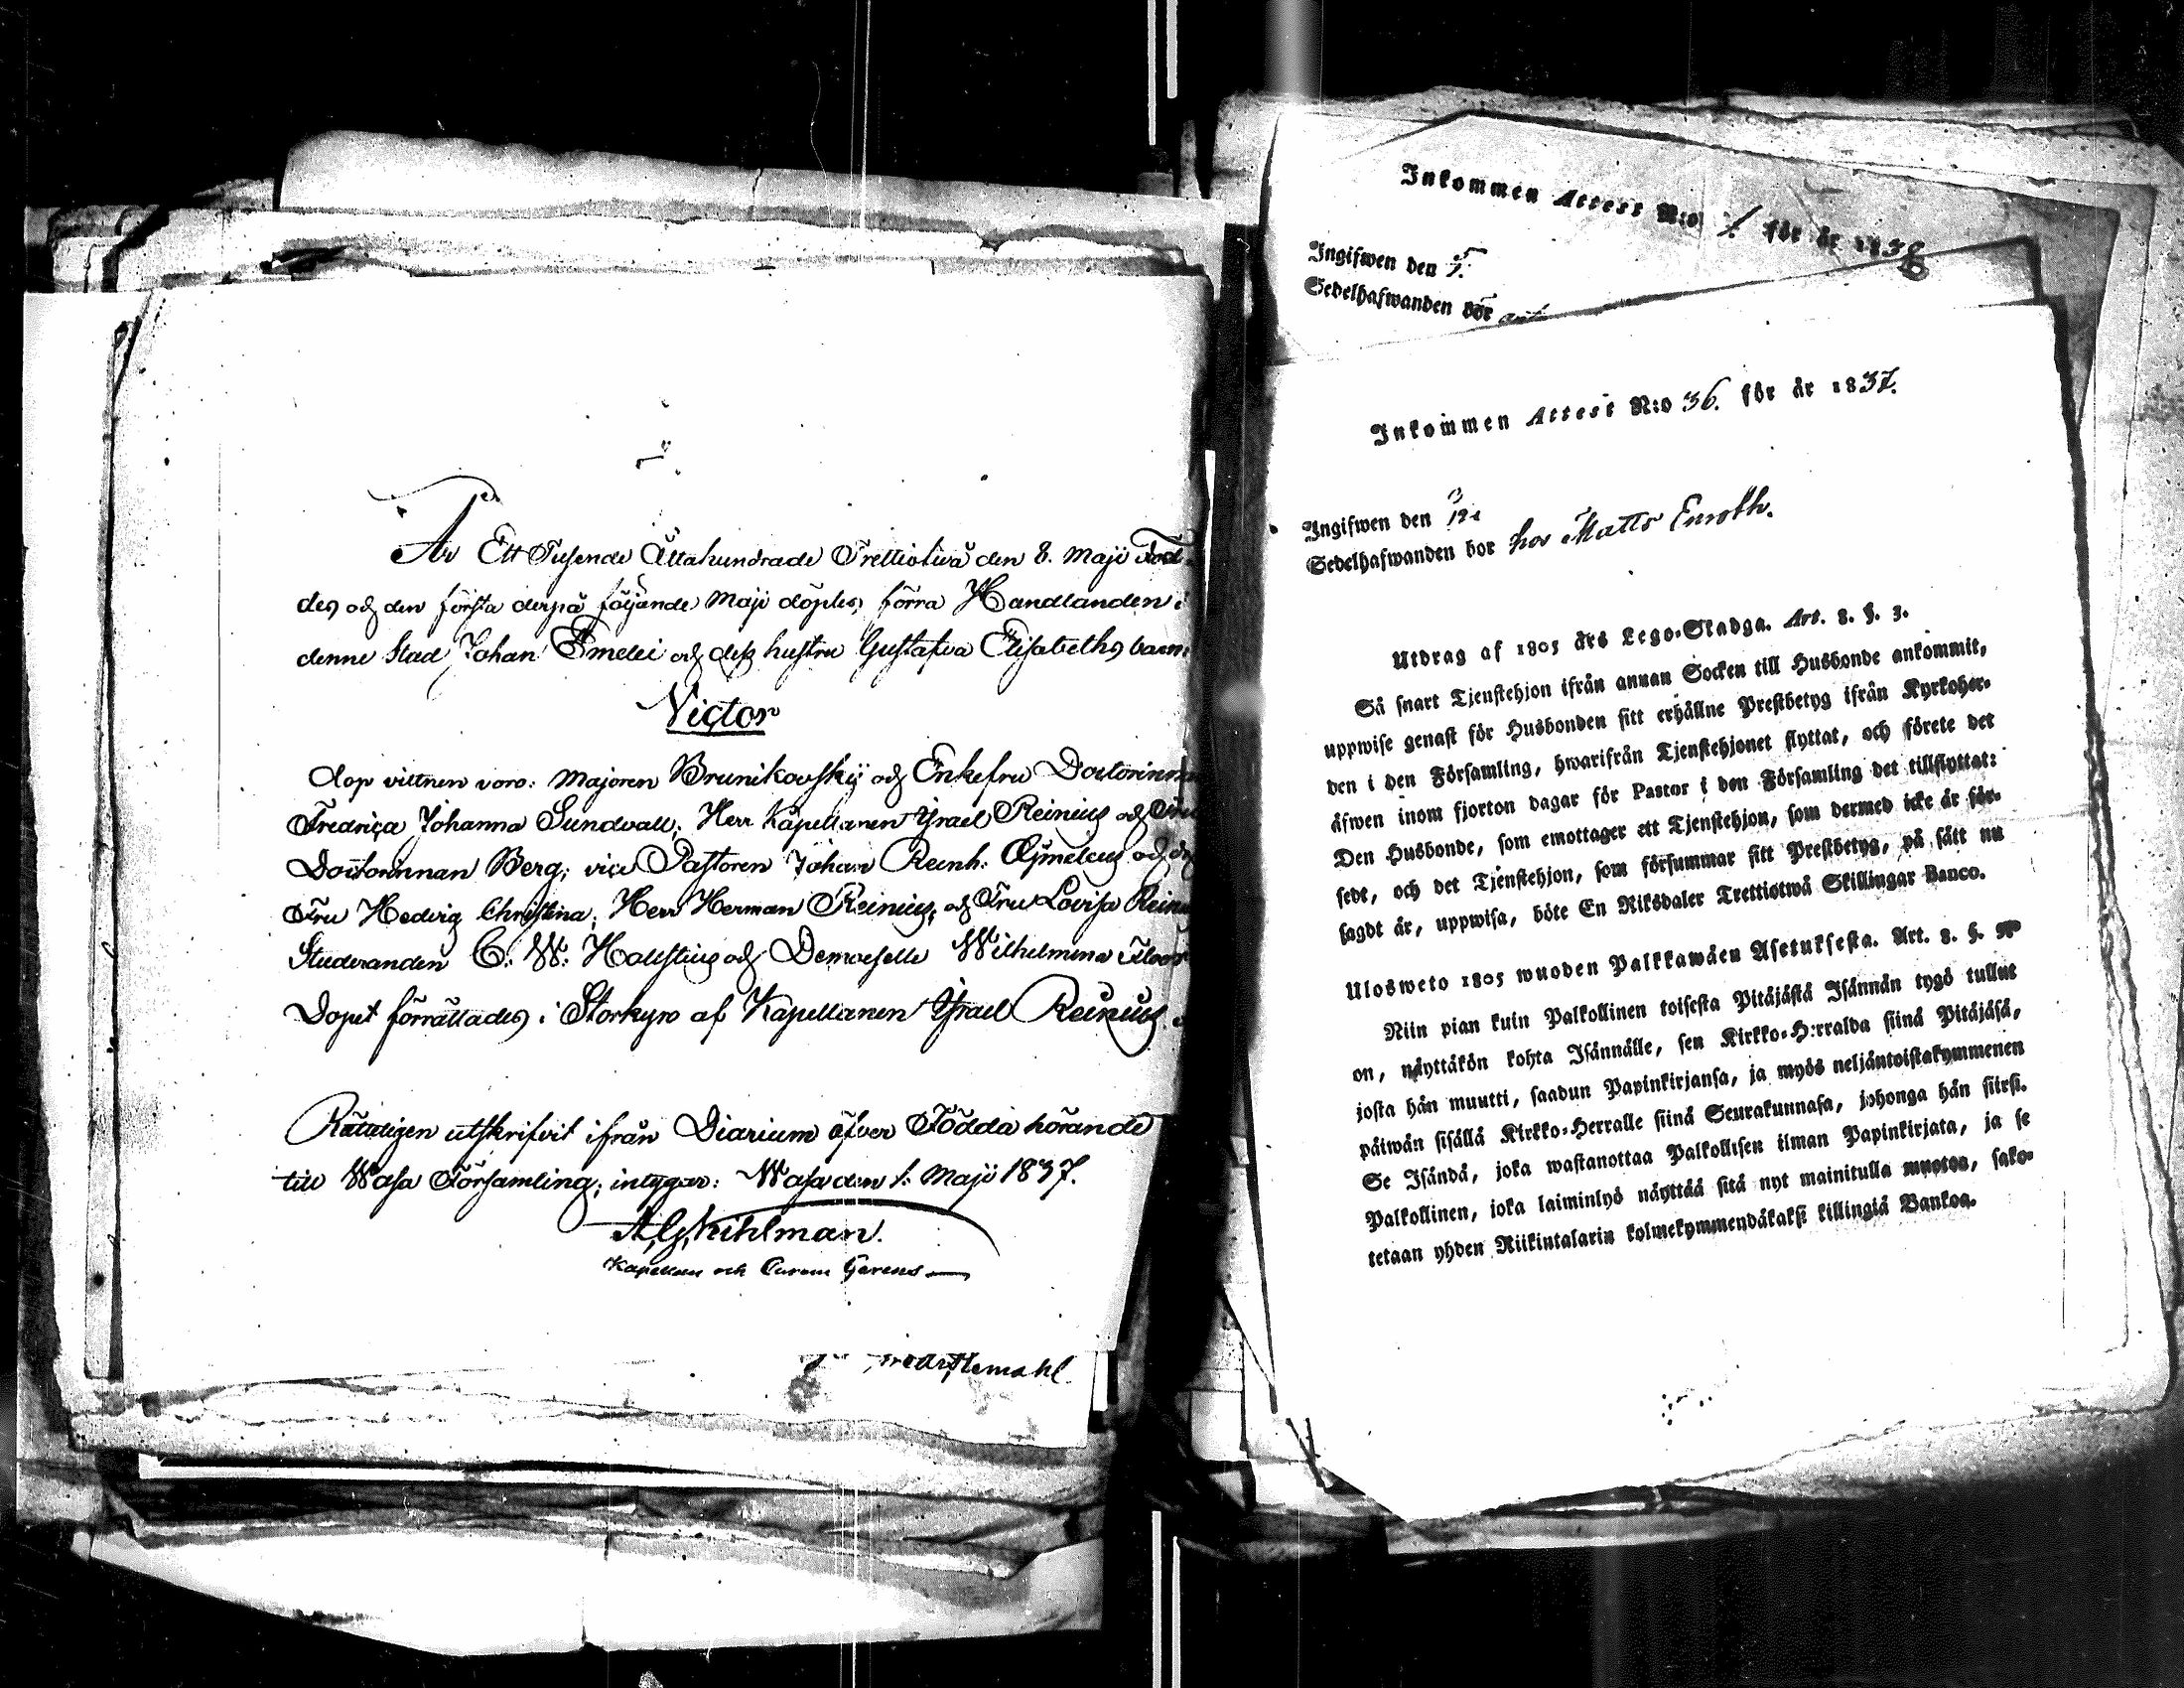 År Ett Tusende Åttahundrade Trettiotvå den 8. Maji Föd-
des och den första derpå följande Maji döptes, förra Handlanden i
denne Stad Johan Smedei och dess hustru Gustafva Elisabeths barn:
Victor
Dop vittnen voro: Majoren Brunikovskij och Enkefru Doctorinnan
Fredrica Johanna Sundvall; Herr Kapellanen Israel Reinius och Fru
Doctorinnan Berg; vice Pastoren Johan Reinh. och
Fru Hedvig Christina; Herr Herman Reinius, och Fru Lovisa
Studeranden C. W. Hallstius och Demoiselle Wilhelmina
Dopet förrättades i Storkyro af Kapellanen Israel Reinius.
Rätteligen utskrifvit ifrån Diarium öfver Födda hörande
till Wasa Församling; intygar: Wasa den 1. Maji 1837.
A. G. Kihlman.
Kapellan och Curam Gerens
Inkommen Attest N:o 1. för år 1838
Ingifwen den
Sedelhafwanden bor
Inkommen Attest N:o 36. för år 1837.
Ingifwen den
Sedelhafwanden bor hos Matts Enroth.
Utdrag af 1805 års Lego-Stadga. Art. 8. §. 3.
Så snart Tjenstehjon ifrån annan Socken till Husbonde ankommit,
uppwise genast för Husbonden sitt erhållne Prestbetyg ifrån Kyrkoher-
den i den Församling, hwarifrån Tjenstehjonet flyttat, och förete det
äfwen inom fjorton dagar för Pastor i den Församling det tillflyttat:
Den Husbonde, som emottager ett Tjenstehjon, som dermed icke är för-
sedt, och det Tjenstehjon, som försummar sitt Prestbetyg, på sätt nu
sagdt är, uppwisa, böte En Riksdaler Trettiotwå Skillingar Banco.
Ulosweto 1805 wuoden Palkkawäen Asetuksesta. Art. 8. §.
Niin pian kuin Palkollinen toisesta Pitäjästä Isännän tygö tullut
on, näyttäkön kohta Isännälle, sen Kirkko-H:rralda siinä Pitäjäsä,
josta hän muutti, saadun Papinkirjansa, ja myös neljäntoistakymmenen
päiwän sisällä Kirkko-Herralle siinä Seurakunnasa, johonga hän siirsi.
Se Isändä, joka wastanottaa Palkollisen ilman Papinkirjata, ja se
Palkollinen, joka laiminlyö näyttää sitä nyt mainitulla muoton, sako-
tetaan yhden Riikintalarin kolmekymmendäkaksi killingiä Bankoa.